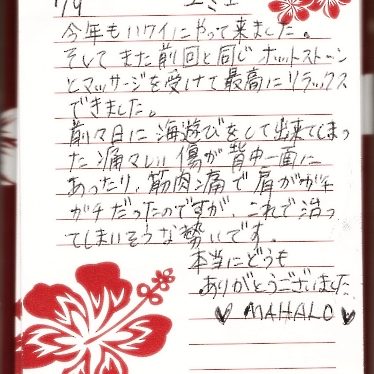 7/9 エミエ
今年もハワイにやって来ました。
そしてまた前回と同じホットストーン
とマッサージを受けて最高にリラックス
できました。
前々日に海遊びをして出来てしまっ
た痛々しい傷が背中一面に
あったり、筋肉痛で肩がガチ
ガチだったのですが、これで治っ
てしまいそうな勢いです。
本当にどうも
ありがとうございました
♥ MAHALO ♥